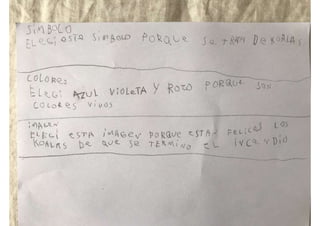 SIMBOLO
ELEGI ESTE SIMBOLO PORQUE SE TRATA DE KOALAS
COLORES
ELEGI AZUL VIOLETA Y ROJO PORQUE SON
COLORES VIVOS
IMAGEN
ELEGI ESTA IMAGEN PORQUE ESTAN FELICES LOS
KOALAS DE QUE SE TERMINO EL INCENDIO